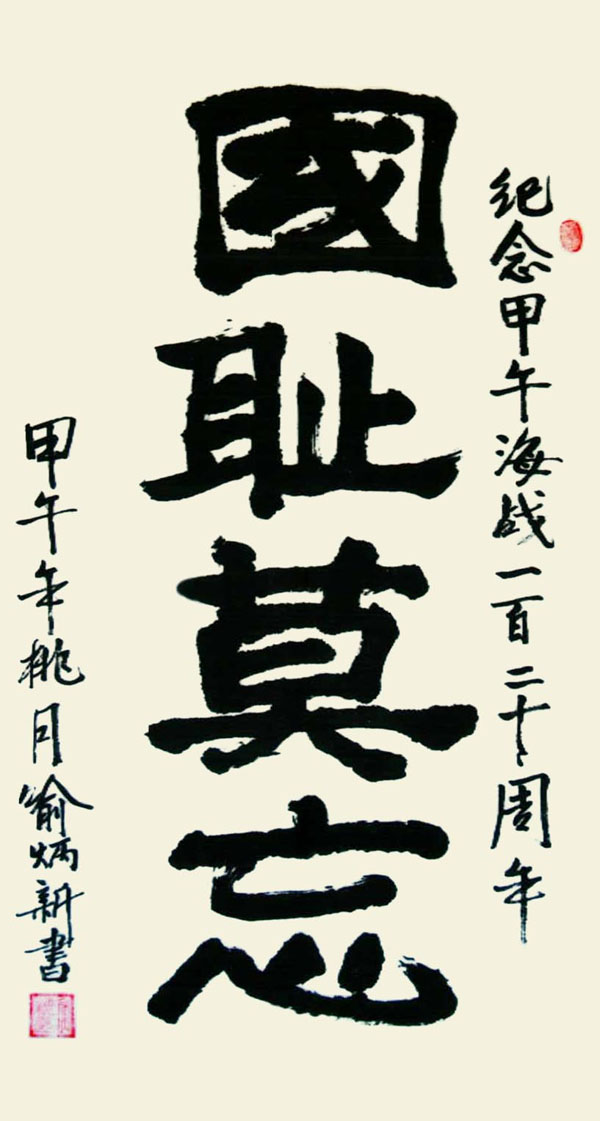 纪念甲午海战一百二十周年
國耻莫忘
甲午年桃月喻炳新書